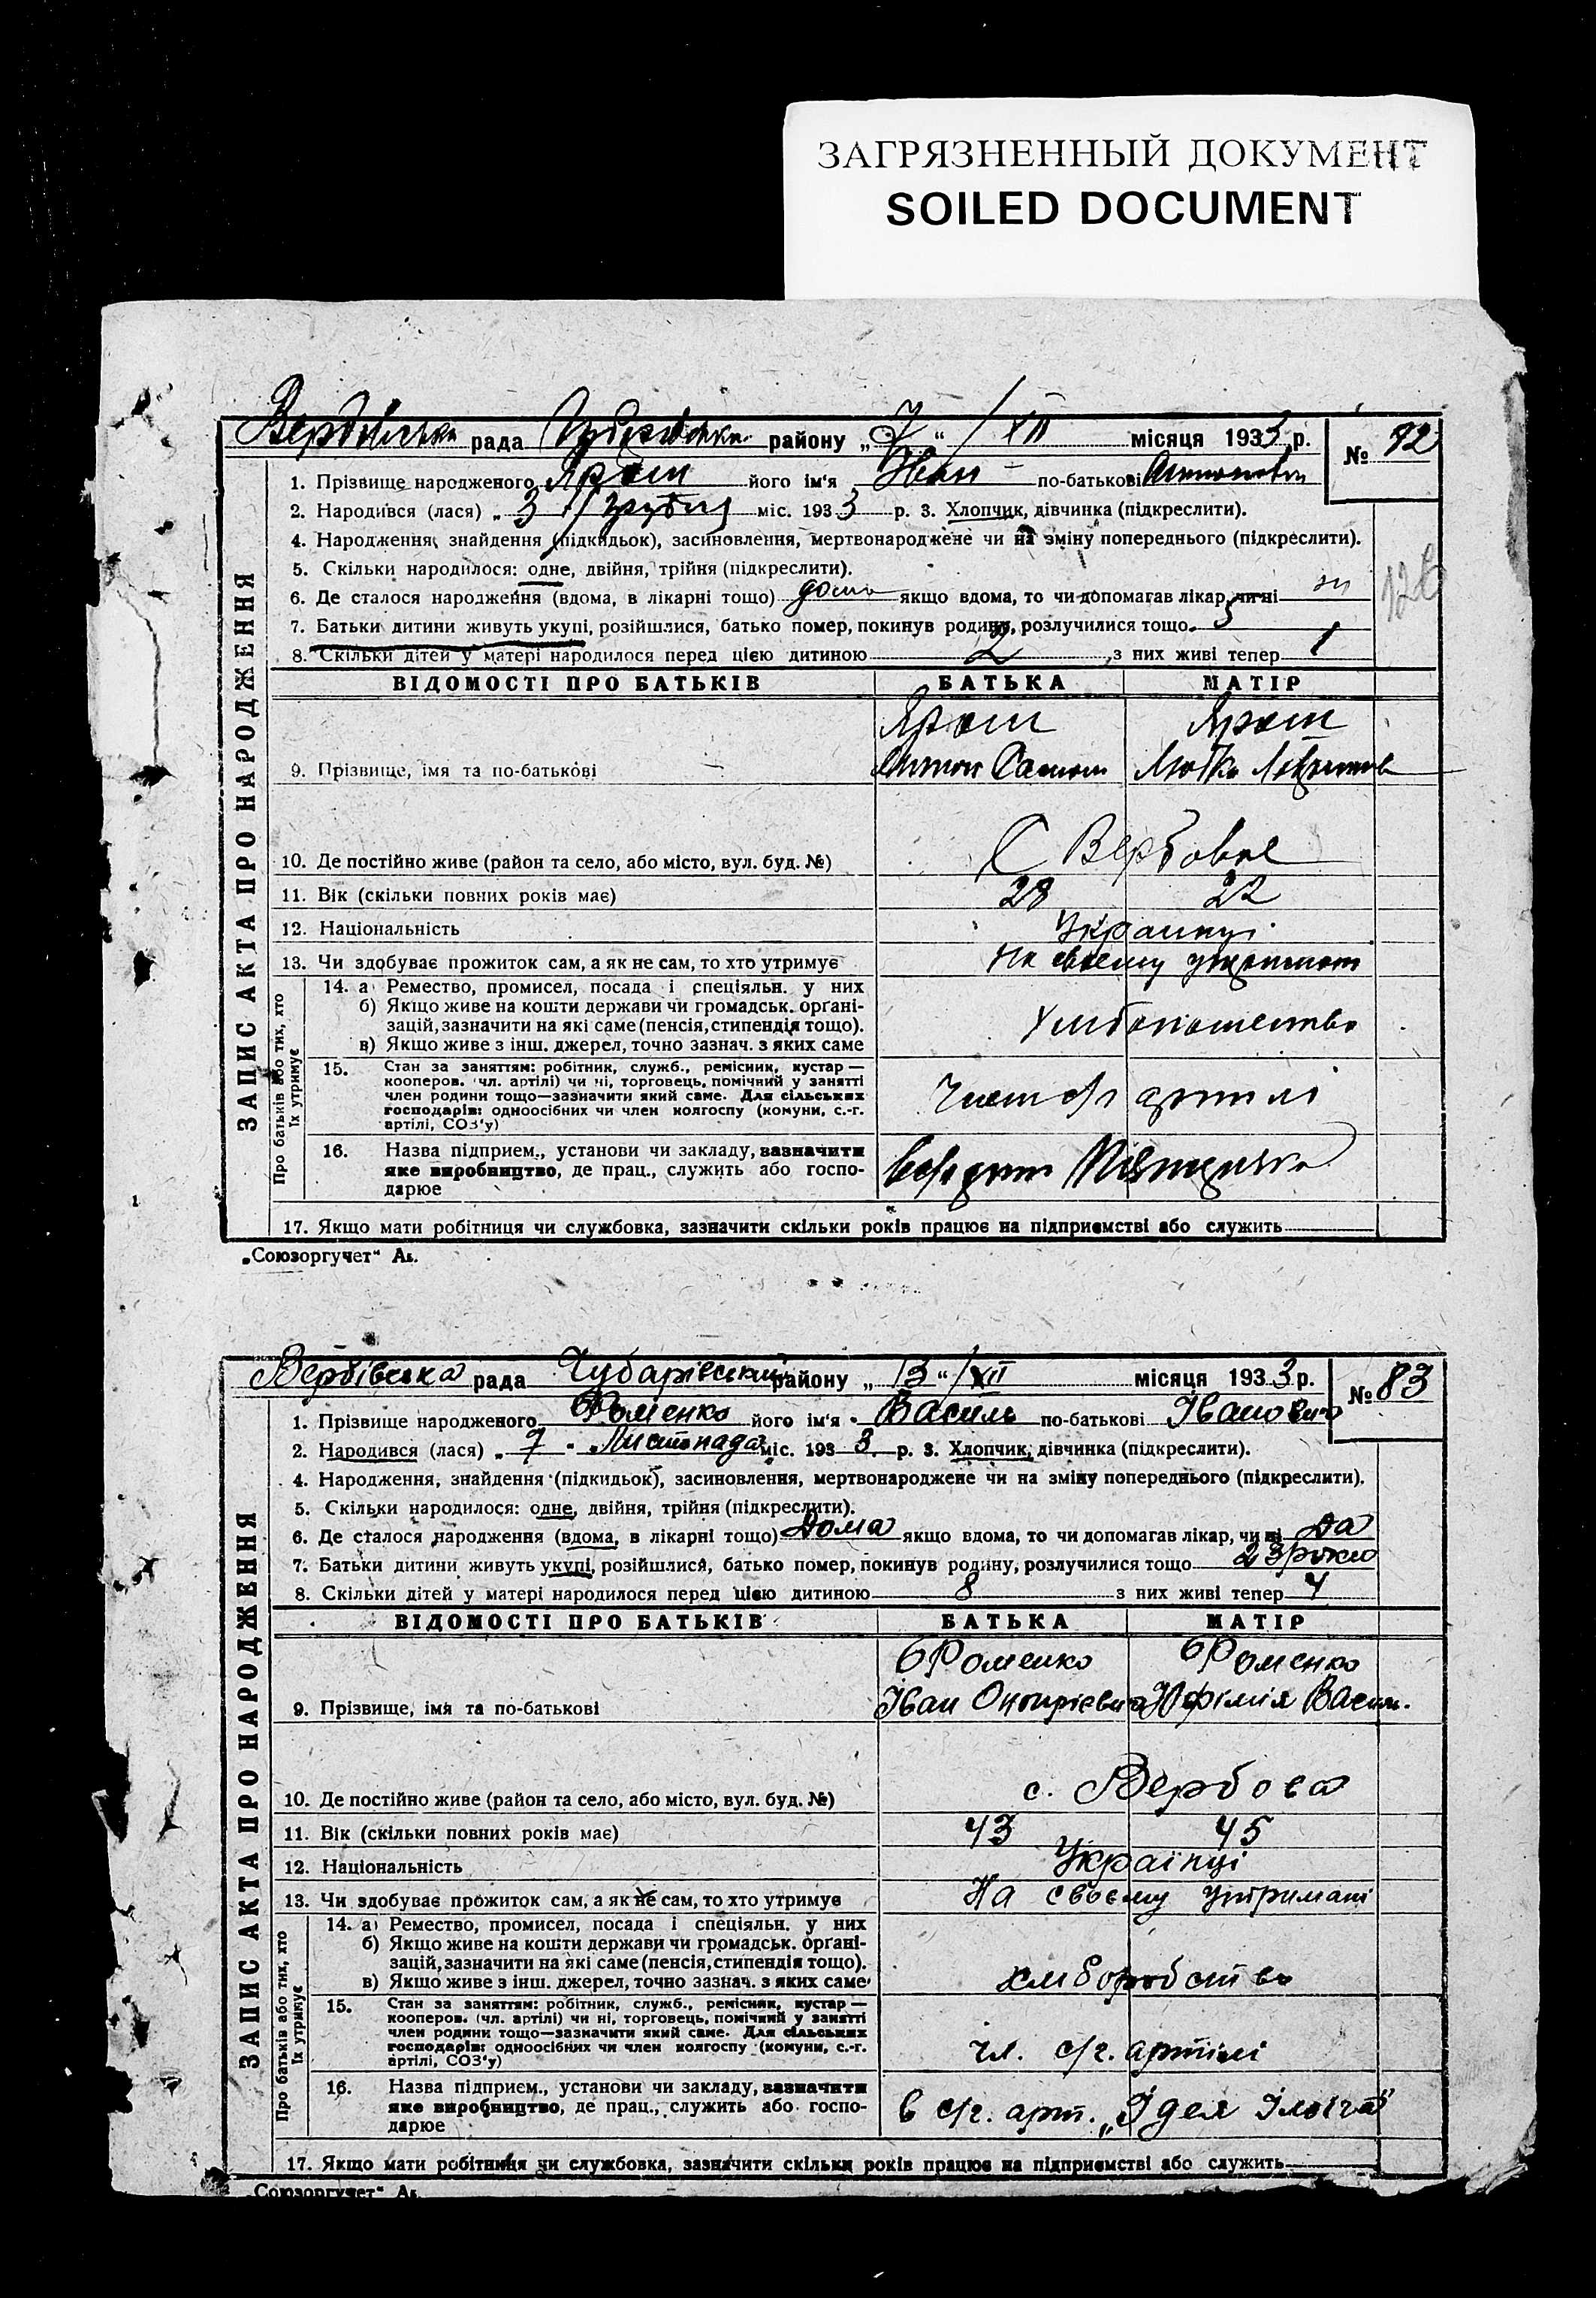 ЗАГРЯЗНЕННЫЙ ДОКУМЕНТ
SOILED DOCUMENT
рада району „7“ /XII місяця 1933 р. №
1. Прізвище народженого його ім'я Іван по-батькові
2. Народився (лася) „3 / грудня міс. 1933 р. 3. Хлопчик, дівчинка (підкреслити).
4. Народження, знайдення (підкидьок), засиновлення, мертвонароджене чи на зміну попереднього (підкреслити).
5. Скільки народилося: одне, двійня, трійня (підкреслити).
6. Де сталося народження (вдома, в лікарні тощо) дома якщо вдома, то чи допомагав лікар, чи ні ні
7. Батьки дитини живуть укупі, розійшлися, батько помер, покинув родину, розлучилися тощо. 5
8. Скільки дітей у матері народилося перед цією дитиною 2 з них живі тепер 1
ВІДОМОСТІ ПРО БАТЬКІВ БАТЬКА МАТІР
9. Прізвище, імя та по-батькові
10. Де постійно живе (район та село, або місто, вул. буд. №) С Вербове
11. Вік (скільки повних років має) 28 22
12. Національність Українці
13. Чи здобуває прожиток сам, а як не сам, то хто утримує На своєму
14. а) Ремество, промисел, посада і спеціяльн. у них
б) Якщо живе на кошти держави чи громадськ. органі-
зацій, зазначити на які саме (пенсія, стипендія тощо).
в) Якщо живе з інш. джерел, точно зазнач. з яких саме
15. Стан за заняттям: робітник, служб., ремісник, кустар —
кооперов. (чл. артілі) чи ні, торговець, помічний у занятті
член родини тощо—зазначити який саме. Для сільських
господарів: одноосібних чи член колгоспу (комуни, с.-г.
артілі, СОЗ'у)
Член с/г артілі
16. Назва підприєм., установи чи закладу, зазначити
яке виробництво, де прац., служить або госпо-
дарює
17. Якщо мати робітниця чи службовка, зазначити скільки років працює на підприємстві або служить
„Союзоргучет“
ЗАПИС АКТА ПРО НАРОДЖЕННЯ
Про батьків або тих, хто
їх утримує
Вербівська рада Чубарівський району „13“ /XII місяця 1933 р. № 83
1. Прізвище народженого Фоменко його ім'я Василь по-батькові Іванович
2. Народився (лася) „7 Листопада міс. 1933 р. 3. Хлопчик, дівчинка (підкреслити).
4. Народження, знайдення (підкидьок), засиновлення, мертвонароджене чи на зміну попереднього (підкреслити).
5. Скільки народилося: одне, двійня, трійня (підкреслити).
6. Де сталося народження (вдома, в лікарні тощо) Дома якщо вдома, то чи допомагав лікар, чи ні Да
7. Батьки дитини живуть укупі, розійшлися, батько помер, покинув родину, розлучилися тощо 23 роки
8. Скільки дітей у матері народилося перед цією дитиною 8 з них живі тепер 4
ВІДОМОСТІ ПРО БАТЬКІВ БАТЬКА МАТІР
Фоменко Фоменко
9. Прізвище, імя та по-батькові Іван Юфімія Васил.
10. Де постійно живе (район та село, або місто, вул. буд. №) с. Вербова
11. Вік (скільки повних років має) 43 45
12. Національність Українці
13. Чи здобуває прожиток сам, а як не сам, то хто утримує На своєму утримані
14. а) Ремество, промисел, посада і спеціяльн. у них
б) Якщо живе на кошти держави чи громадськ. органі-
зацій, зазначити на які саме (пенсія, стипендія тощо).
в) Якщо живе з інш. джерел, точно зазнач. з яких саме
хліборобство
15. Стан за заняттям: робітник, служб., ремісник, кустар —
кооперов. (чл. артілі) чи ні, торговець, помічний у занятті
член родини тощо—зазначити який саме. Для сільських
господарів: одноосібних чи член колгоспу (комуни, с.-г.
артілі, СОЗ'у)
чл. с/г. артілі
16. Назва підприєм., установи чи закладу, зазначити
яке виробництво, де прац., служить або госпо-
дарює
в с/г. арт. „Ідея Ілліча“
17. Якщо мати робітниця чи службовка, зазначити скільки років працює на підприємстві або служить
„Союзоргучет“
ЗАПИС АКТА ПРО НАРОДЖЕННЯ
Про батьків або тих, хто
їх утримує